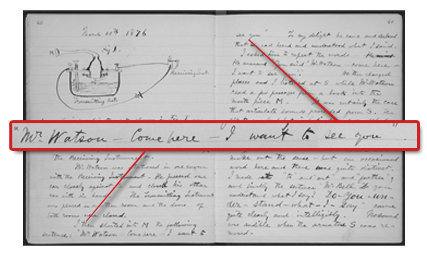 40
March 10th 1876
Fig 1.
M
Receiving Inst.
Transmitting Inst.
the Receiving Instrument
Mr. Watson was stationed in one room
with the Receiving Instrument. He pressed one
ear closely against S and closed his other
ear with his hand. The Transmitting Instrument
was placed in another room and the doors of
both rooms were closed.
I then shouted into M the following
sentence: "Mr. Watson - Come here - I want to
"Mr. Watson - Come here - I want to see you"
41
see you". To my delight he came and declared
that he had heard and understood what I said.
I asked him to repeat the words. He
answered "You said 'Mr. Watson - come here -
I want to see you'." We then changed
places and I listened at S while Mr. Watson
read a few passages from a book into the
mouth piece M. It was certainly the case
that articulate sounds proceeded from S. The
make out the sense - but an occasional
word here and there was quite distinct.
I made out "to" and "out" and "further";
and finally the sentence "Mr. Bell do you
understand what I say? Do-you-un-
der-stand-what-I-say" came
quite clearly and intelligibly. No sound
was audible when the armature S was re-
moved.